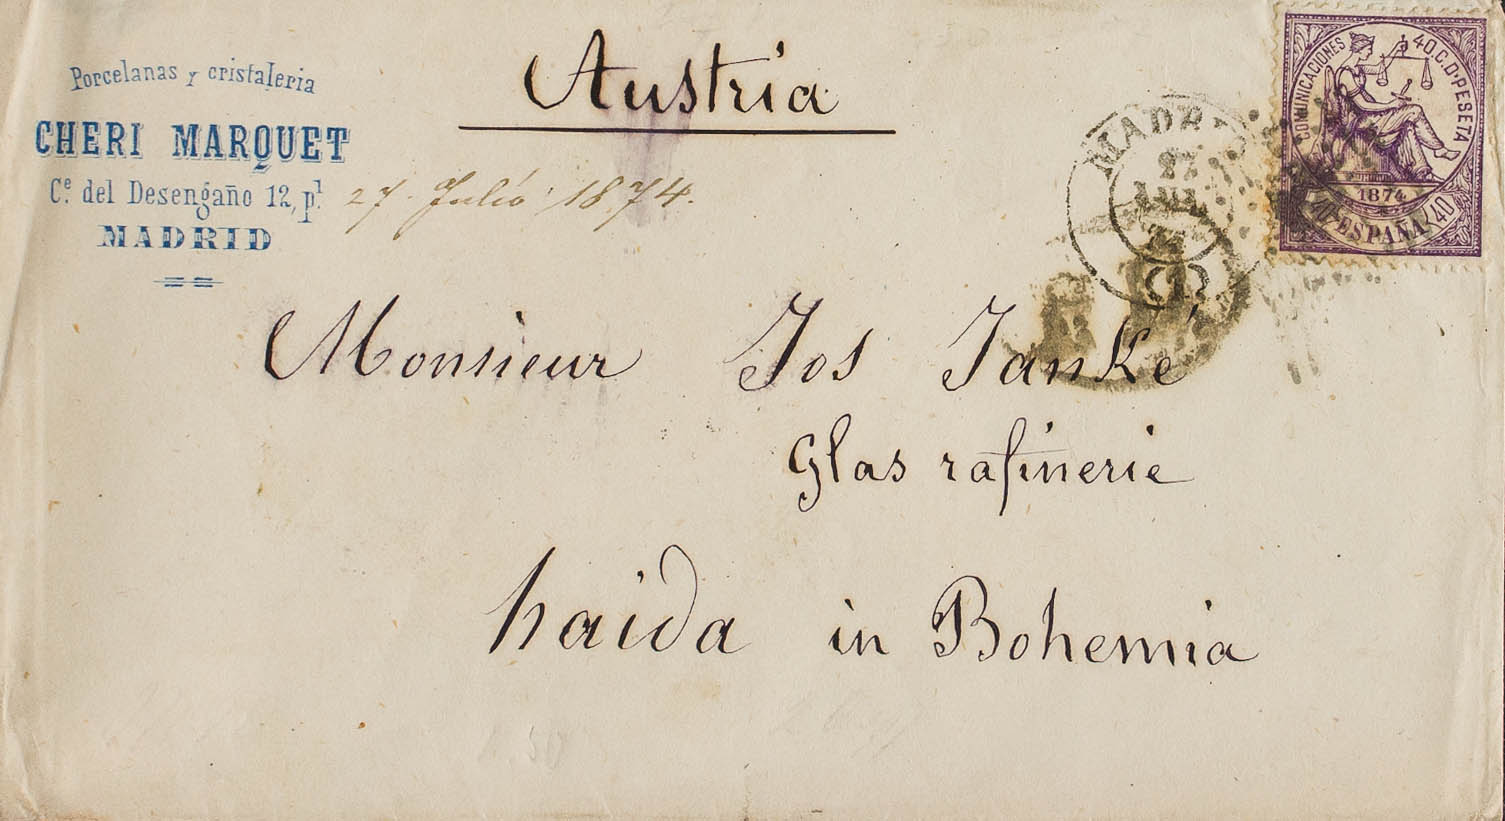 Austria
Porcelanas y cristaleria
CHERI MARQUET
Cᵉ del Desengaño 12, pˡ
MADRID
27 Julio 1874.
MADRID
27
JUL
74
(1)
COMUNICACIONES 40 C. D PESETA
1874
40 ESPAÑA 40
Monsieur Jos Janké
Glas rafinerie
haida in Bohemia